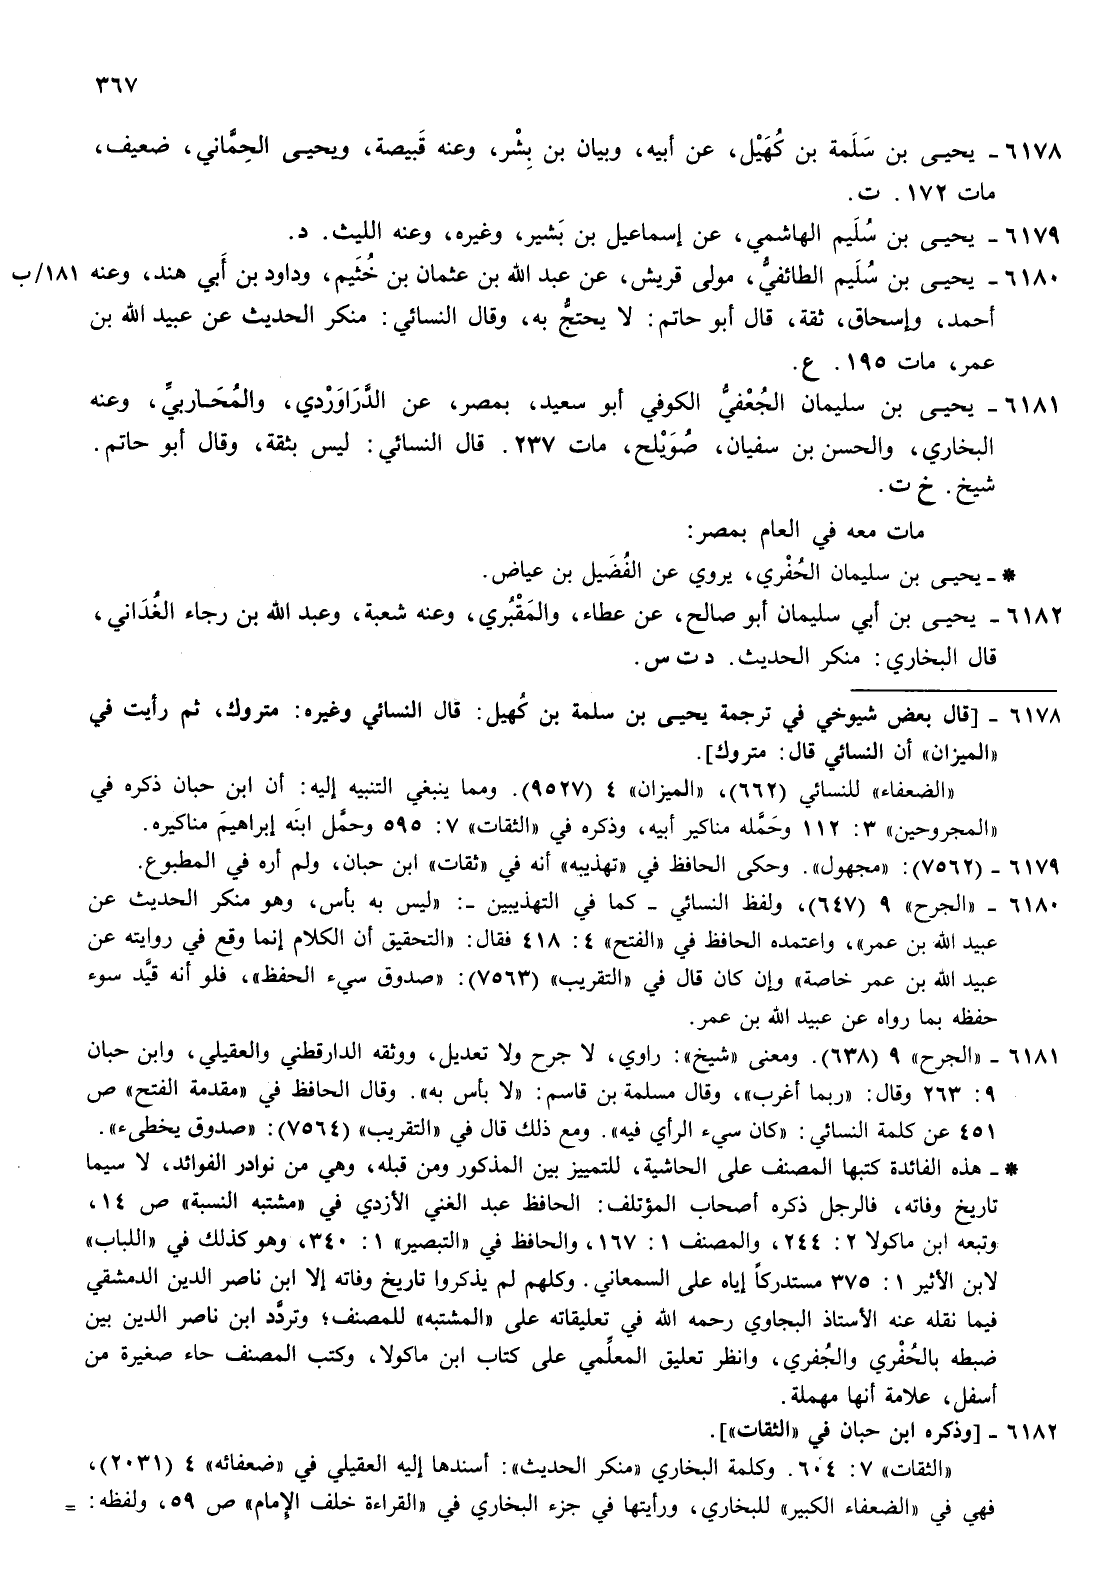 ٣٦٧
٦١٧٨ - يحيى بن سَلَمة بن كُهَيْل، عن أبيه، وبيان بن بِشْر، وعنه قَبيصة، ويحيى الحِمَّاني، ضعيف،
مات ١٧٢. ت.
٦١٧٩ - يحيى بن سُلَيم الهاشمي، عن إسماعيل بن بَشير، وغيره، وعنه الليث. د.
٦١٨٠ - يحيى بن سُلَيم الطائفيُّ، مولى قريش، عن عبد الله بن عثمان بن خُثَيم، وداود بن أَبي هند، وعنه ١٨١/ب
أحمد، وإسحاق، ثقة، قال أبو حاتم: لا يحتجُّ به، وقال النسائي: منكر الحديث عن عبيد الله بن
عمر، مات ١٩٥. ع.
٦١٨١ - يحيى بن سليمان الجُعْفيُّ الكوفي أبو سعيد، بمصر، عن الدَّرَاوَرْدي، والمُحَاربيِّ، وعنه
البخاري، والحسن بن سفيان، صُوَيْلح، مات ٢٣٧. قال النسائي: ليس بثقة، وقال أبو حاتم.
شيخ. خ ت.
مات معه في العام بمصر:
* - يحيى بن سليمان الحُفْري، يروي عن الفُضَيل بن عياض.
٦١٨٢ - يحيى بن أبي سليمان أبو صالح، عن عطاء، والمَقْبُري، وعنه شعبة، وعبد الله بن رجاء الغُدَاني،
قال البخاري: منكر الحديث. د ت س.
٦١٧٨ - [قال بعض شيوخي في ترجمة يحيى بن سلمة بن كُهيل: قال النسائي وغيره: متروك، ثم رأيت في
«الميزان» أن النسائي قال: متروك].
«الضعفاء» للنسائي (٦٦٢)، «الميزان» ٤ (٩٥٢٧). ومما ينبغي التنبيه إليه: أن ابن حبان ذكره في
«المجروحين» ٣: ١١٢ وحَمَّله مناكير أبيه، وذكره في «الثقات» ٧: ٥٩٥ وحمَّل ابنَه إبراهيمَ مناكيره.
٦١٧٩ - (٧٥٦٢): «مجهول». وحكى الحافظ في «تهذيبه» أنه في «ثقات» ابن حبان، ولم أره في المطبوع.
٦١٨٠ - «الجرح» ٩ (٦٤٧)، ولفظ النسائي - كما في التهذيبين -: «ليس به بأس، وهو منكر الحديث عن
عبيد الله بن عمر»، واعتمده الحافظ في «الفتح» ٤: ٤١٨ فقال: «التحقيق أن الكلام إنما وقع في روايته عن
عبيد الله بن عمر خاصة» وإن كان قال في «التقريب» (٧٥٦٣): «صدوق سيء الحفظ»، فلو أنه قيَّد سوء
حفظه بما رواه عن عبيد الله بن عمر.
٦١٨١ - «الجرح» ٩ (٦٣٨). ومعنى «شيخ»: راوي، لا جرح ولا تعديل، ووثقه الدارقطني والعقيلي، وابن حبان
٩: ٢٦٣ وقال: «ربما أغرب»، وقال مسلمة بن قاسم: «لا بأس به». وقال الحافظ في «مقدمة الفتح» ص
٤٥١ عن كلمة النسائي: «كان سيء الرأي فيه». ومع ذلك قال في «التقريب» (٧٥٦٤): «صدوق يخطىء».
* - هذه الفائدة كتبها المصنف على الحاشية، للتمييز بين المذكور ومن قبله، وهي من نوادر الفوائد، لا سيما
تاريخ وفاته، فالرجل ذكره أصحاب المؤتلف: الحافظ عبد الغني الأزدي في «مشتبه النسبة» ص ١٤،
وتبعه ابن ماكولا ٢: ٢٤٤، والمصنف ١: ١٦٧، والحافظ في «التبصير» ١: ٣٤٠، وهو كذلك في «اللباب»
لابن الأثير ١: ٣٧٥ مستدركاً إياه على السمعاني. وكلهم لم يذكروا تاريخ وفاته إلا ابن ناصر الدين الدمشقي
فيما نقله عنه الأستاذ البجاوي رحمه الله في تعليقاته على «المشتبه» للمصنف؛ وتردَّد ابن ناصر الدين بين
ضبطه بالحُفْري والجُفري، وانظر تعليق المعلِّمي على كتاب ابن ماكولا، وكتب المصنف حاء صغيرة من
أسفل، علامة أنها مهملة.
٦١٨٢ - [وذكره ابن حبان في «الثقات»].
«الثقات» ٧: ٦٠٤. وكلمة البخاري «منكر الحديث»: أسندها إليه العقيلي في «ضعفائه» ٤ (٢٠٣١)،
فهي في «الضعفاء الكبير» للبخاري، ورأيتها في جزء البخاري في «القراءة خلف الإمام» ص ٥٩، ولفظه: =